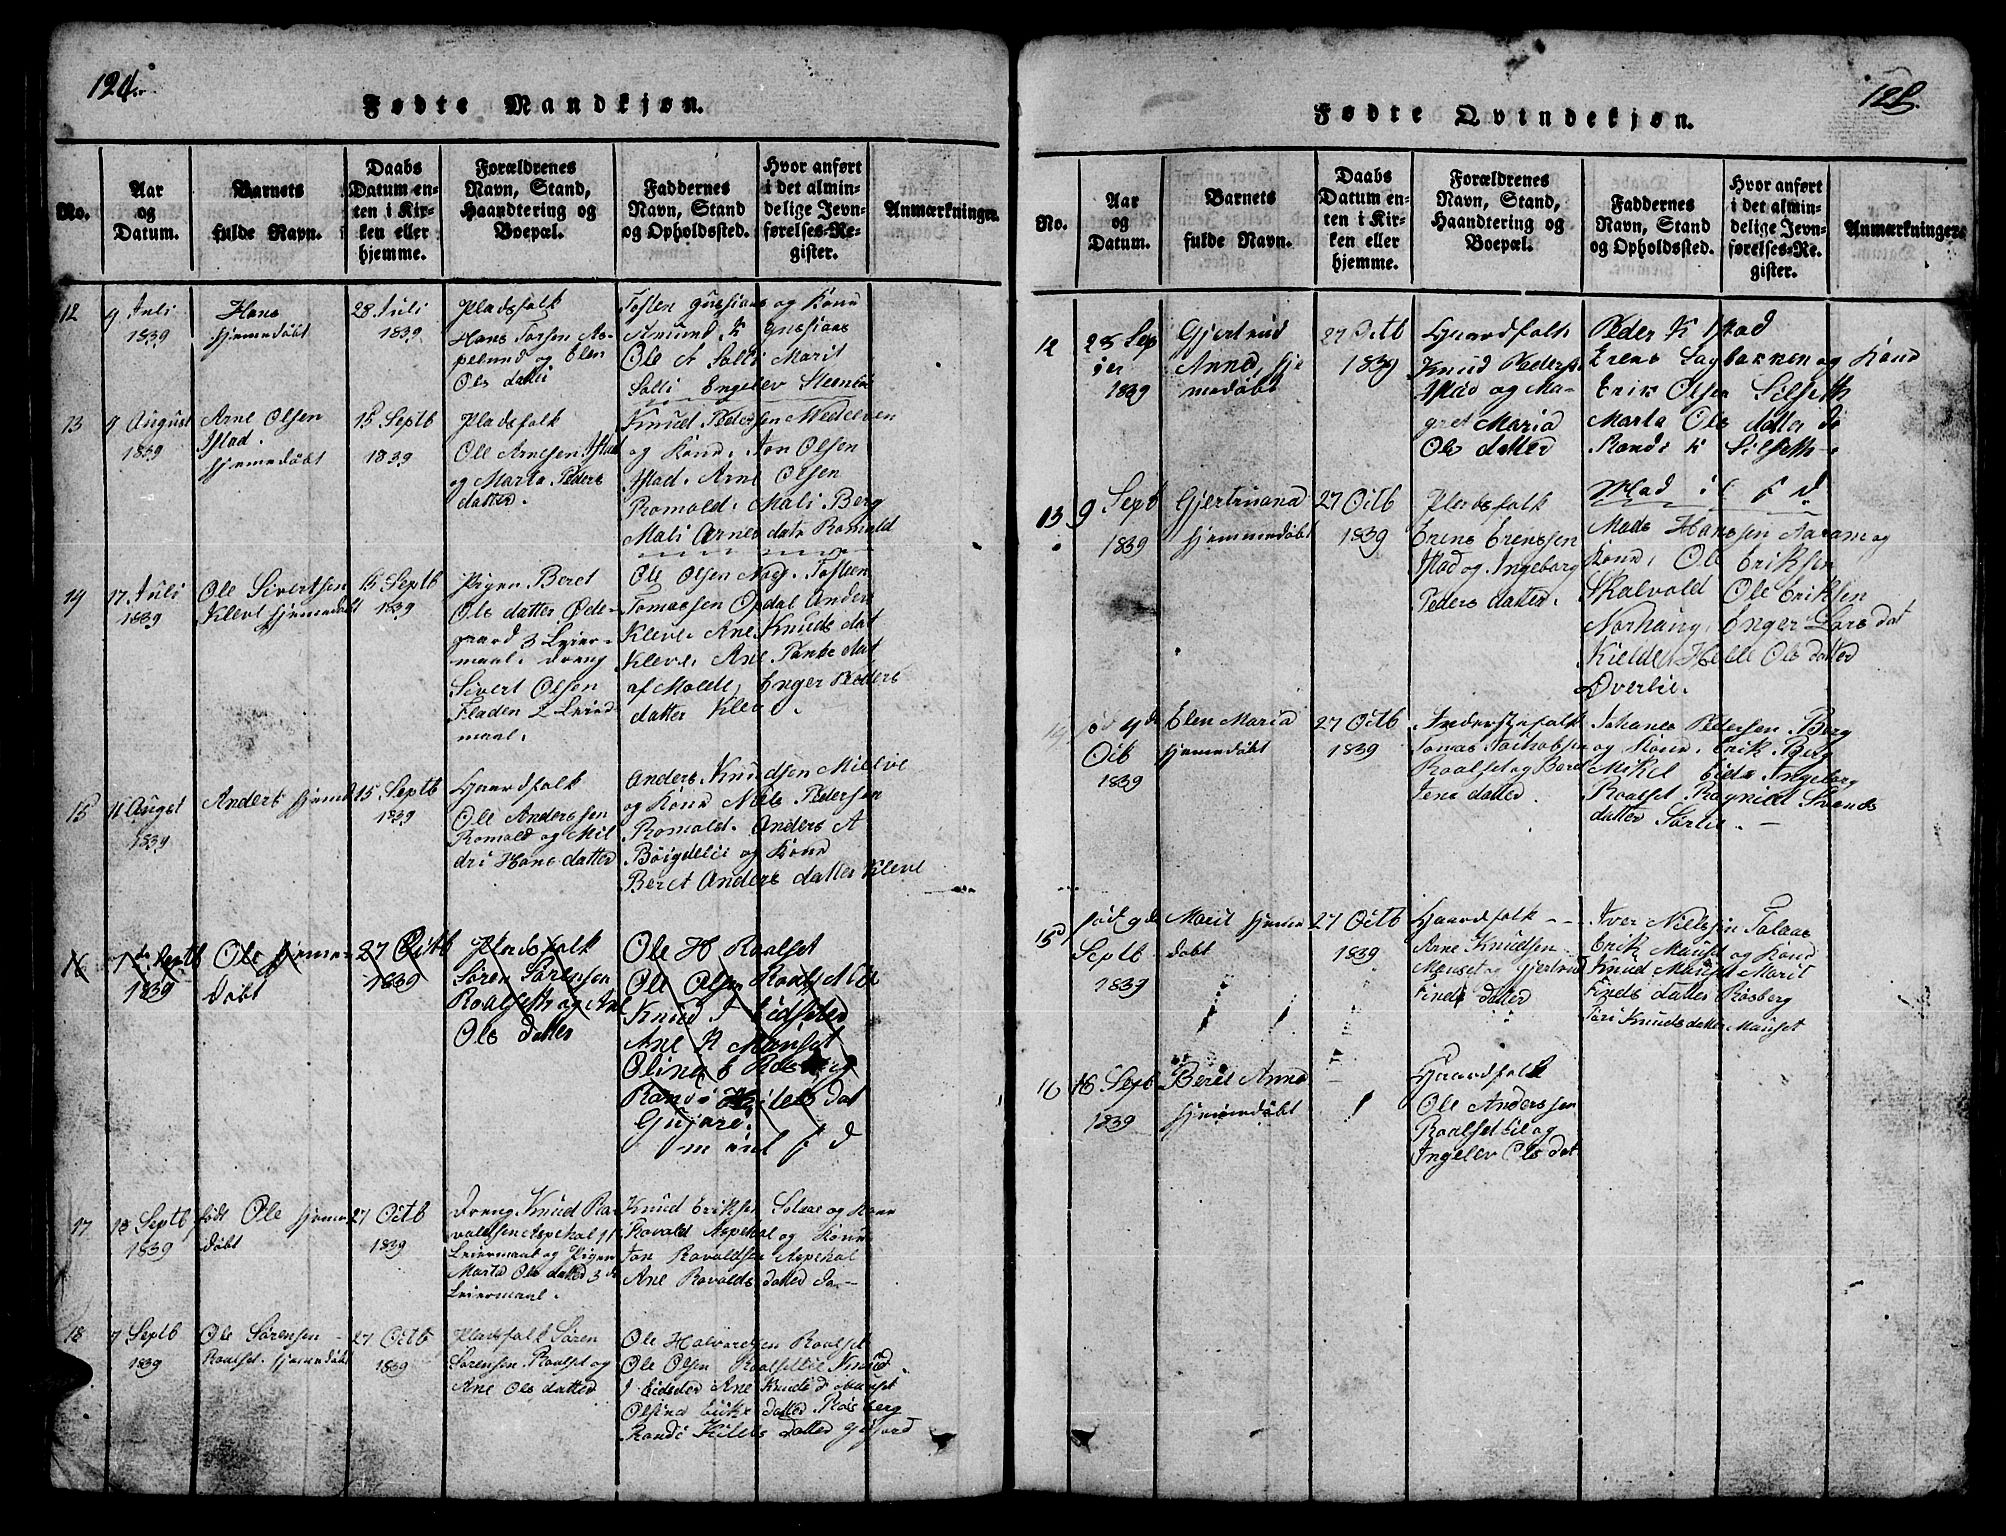 124
Fødte Mandkjøn.
No.
Aar
og
Datum.
Barnets
fulde Navn.
Daabs
Datum en-
ten i Kir-
ken eller
hjemme.
Forældrenes
Navn, Stand,
Haandtering og
Boepæl.
Faddernes
Navn, Stand
og Opholdssted.
Hvor anført
i det almin-
delige Jevn-
førelses-Re-
gister.
Anmærkninger.
12
9 Juli
1839
Hans
hjemedøbt
28 Juli
1839
Pladsfolk
Hans Torsen As-
pelund og Elen
Ols datter
og Kone
Ole A Solli Marit
Solli Engelev
13
9 August
1839
Arne Olsen
Istad.
hjemedøbt
15 Septb
1839
Pladsfolk
Ole Arnesen Istad
og Marta Peders
datter.
Knud Pedersen Medelven
og Kone, Jon Olsen
Istad. Arne Olsen
Romold, Mali Berg
Mali Arnes datr Romold
14
17 Juli
1839
Ole Sivertsen
Kleve hjemedøbt
15 Septb
1839
Pigen Beret
Ols datter Øde-
gaard 3 Leier-
maal. dreng
Sivert Olsen
Fladen 2 Leier
maal.
Ole Olsen Nøs. Tosten
Tomassen Opdal Anders
Kleve. Ane Knuds dat
Kleve. Ane dat
af Molde, Enger Peders
datter Kleve.
15
16 Augst
1839
Anders hjeme
15 Septb
1839
Gaardfolk
Ole Anderssen
Romold og Mil
dri Hans datter
Anders Knudsen Mieve
og Kone Niels Pedersen
Romold. Anders A
Bøigdelie og Kone
Beret Anders datter Kleve
16
7 de Septb
1839
Ole hjeme-
døbt
27 Octb
1839
Pladsfolk
Søren Sørensen
Roalseth og Ane
Ols datter
Ole H Roalset
Ole Olsen Roalset lie
Knud J Eidseter
Ane K Mauset
Olina E Røsberg
Randi Kiels dat
17
18 Septb
1839
født Ole hjeme
døbt
27 Octb
1839
dreng Knud Ro
valdsen Aspehol
Leiermaal og Pigen
Marta Ols datter 3 d
Leiermaal.
Knud Eriksen Solaae og Kone
Rovald Aspehol og Kone
Jon Rovaldsen Aspehol
Ane Rovalds datter do-
18
7 Septb
1839
Ole Sørensen
Roalset. hjemedøbt
27 Octb
1839
Pladsfolk Søren
Sørensen Roalset og
Ane Ols datter
Ole Halvorsen Roalset
Ole Olsen Roalsetlie Knud
J Eideder Ane Knuds d Mauset
Olsina Eriks datter Røsberg
Randi Kiels datter
125
Fødte Qvindekjøn.
No.
Aar
og
Datum.
Barnets
fulde Navn.
Daabs
Datum en-
ten i Kir-
ken eller
hjemme.
Forældrenes
Navn, Stand,
Haandtering og
Boepæl.
Faddernes
Navn, Stand
og Opholdssted.
Hvor anført
i det almin-
delige Jevn-
førelses-Re-
gister.
Anmærkninger.
12
28 Sep
1839
Gjertrud
Anna, hje
medøbt
27 Octb
1839
Gaardfolk
Knud Peders
Istad og Ma-
gret Maria
Ols datter
Peder K Istad
Erens og Kone
Erik Olsen Silseth
Marta Ols datter do
Randi K Silseth
13
9 Septb
1839
Gjertruana
hjemmedøbt
27 Octb
1839
Pladsfolk
Erens Erenssen
Istad og Ingeborg
Peders datter.
Mads Hanssen Aaram og
Kone, Ole Eriksen
Skalvold Ole Eriksen
Norhaug, Enger Lars dat
Kielde, Helle Ols datter
Øverlie.
14
4 de
Octb
1839
Elen Maria
hjemedøbt
27 Octb
1839
Tomas
Roalset og Beret
Jens datter
Johanes Pedersen Berg
og Kone, Erik Berg
Mikel Eide Ingeborg
Roalset Ragnild
datter Sørlie.
15
født 9 de
Septb
1839
Marit hjeme
døbt
27 Octb
1839
Gaardfolk
Arne Knudsen
Mauset og Gjertrud
Finds datter
Iver Nielsen Solaas
Erik Mauset og Kone
Knud Mauset Marit
Finds datter Røsberg
Knuds datter Mauset
16
16 Septb
1839
Berit Anna
hjemmedøbt
Gaardfolk
Ole Anderssen
Roalset lie og
Ingelev Ols dat